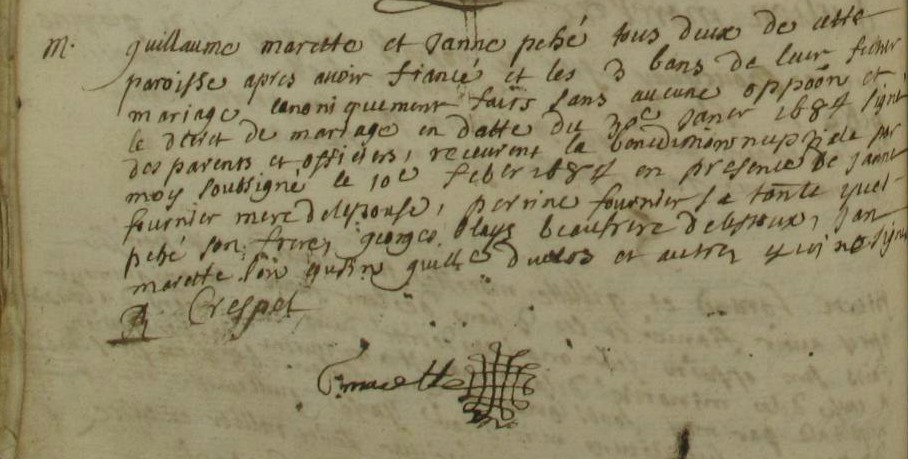 M. guillaume marette et Janne pehé tous deux de cette
paroisse apres avoir fiancé et les 3 bans de leur futur
mariage canoniquement faits sans aucune oppoõn et
le decret de mariage en datte du 30e Janer 1684 signé
des parents et officiers, receurent la benediction nuptiale par
moy soubsigné le 10e feber 1684 en presence de Janne
fournier mere delepouse, perrine fournier sa tante
pehé son frere, georges blays beaufrere delespoux, Jan
marette son cousin guille et autres qui ne signe
R Crespel
marette